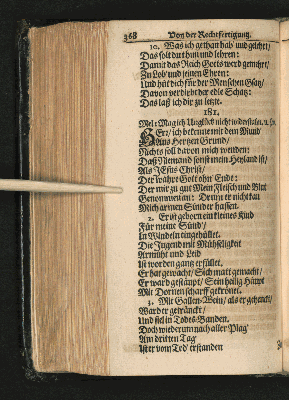 368 Von der Rechtfertigung.
10. Was ich gethan hab' und gelehrt/
Das solt du thun und lehren:
Damit das Reich Gotts werd gemehrt/
Zu Lob' und seinen Ehren:
Und hüt dich für der Menschen Gsatz/
Davon verdirbt der edle Schatz:
Das laß ich dir zu letzte.
181.
Mel: Mag ich Unglück nicht
HErr/ ich bekenne mit dem Mund/
Aus Hertzen Grund/
Nichts soll davon mich wenden:
Daß Niemand sonst mein Heyland ist/
Als JEsus Christ/
Der wahre Gott ohn' Ende:
Der mir zu gut Mein Fleisch und Blut
Genommen an: Drum er nicht kan
Mich armen Sünder hassen.
2. Er ist geborn ein kleines Kind
Für meine Sünd'/
In Windeln eingehüllet.
Die Jugend mit Mühseligkeit
Armuht und Leid
Ist worden gantz erfüllet.
Er hat gewacht/ Sich matt gemacht/
Er ward gestäupt/ Sein heilig Häupt
Mit Dornen scharff gekrönet.
3. Mit Gallen-Wein/ als er gehenckt/
Ward er getränckt/
Und fiel in Todes-Banden.
Doch wiederum nach aller Plag'
Am dritten Tag'
Ist er vom Tod' erstanden